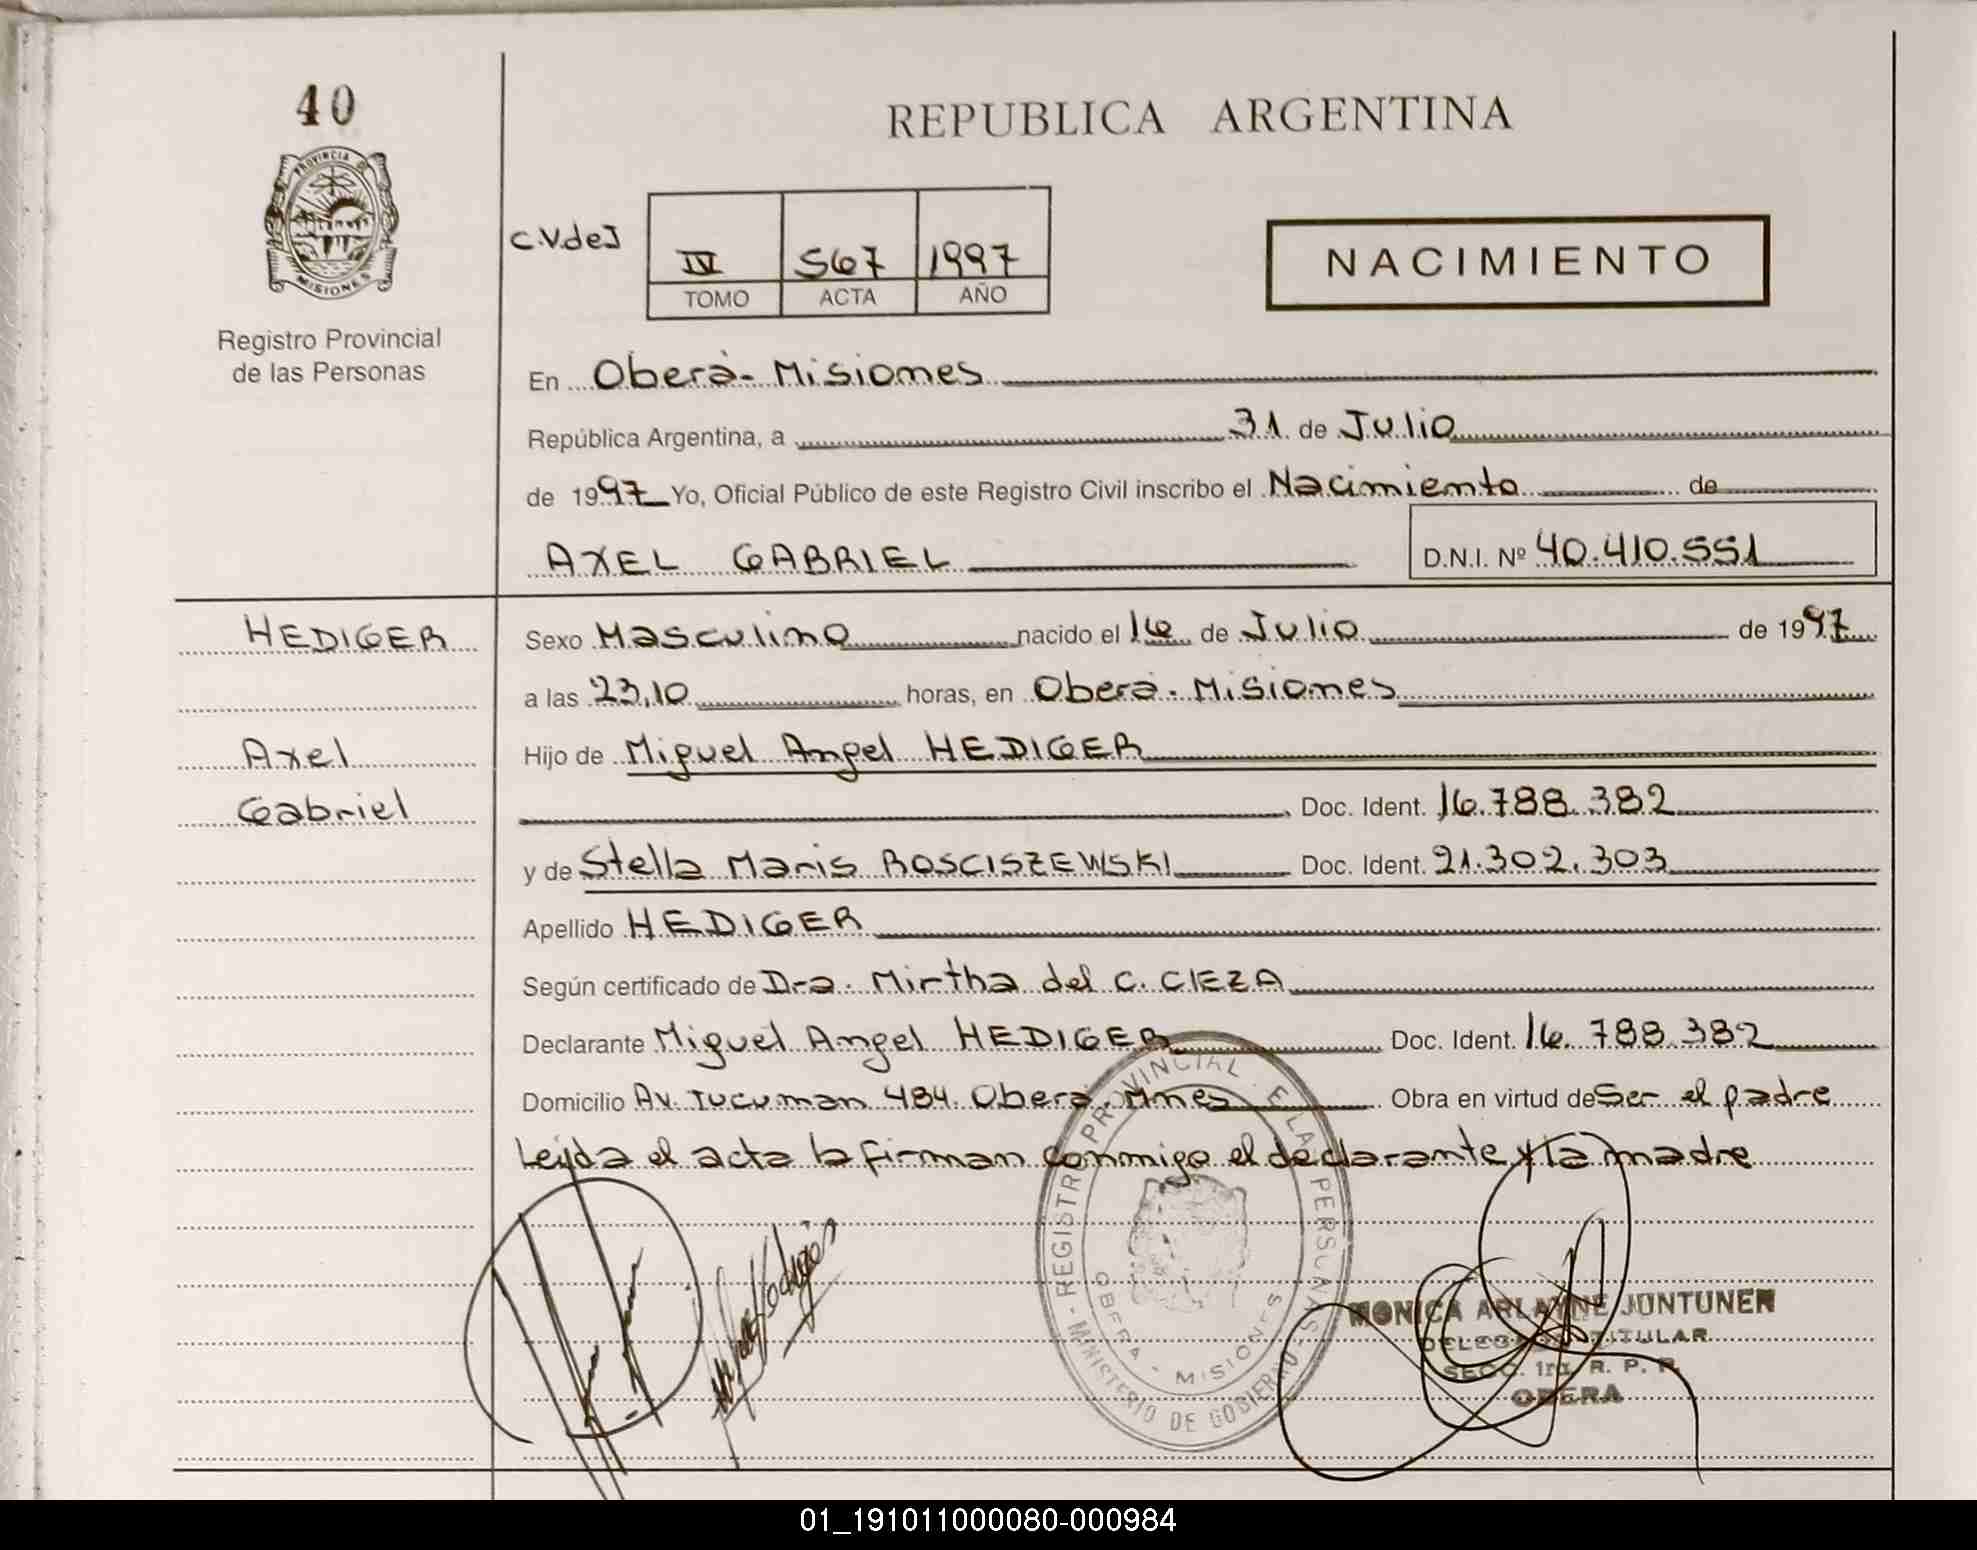 40
REPUBLICA ARGENTINA
PROVINCIA DE
MISIONES
Registro Provincial
de las Personas
C.V.deJ
IV 567 1997
TOMO ACTA AÑO
NACIMIENTO
En Oberà - Misiones
República Argentina, a 31 de Julio
de 1997 Yo, Oficial Público de este Registro Civil inscribo el Nacimiento de
AXEL GABRIEL D.N.I. Nº 40.410.551
HEDIGER
Axel
Gabriel
Sexo Masculino nacido el 16 de Julio de 1997
a las 23,10 horas, en Oberá - Misiones
Hijo de Miguel Angel HEDIGER
Doc. Ident. 16.788.382
y de Stella Maris ROSCISZEWSKI Doc. Ident. 21.302.303
Apellido HEDIGER
Según certificado de Dra. Mirtha del C. CIEZA
Declarante Miguel Angel HEDIGER Doc. Ident. 16.788.382
Domicilio Av. Tucuman 484. Oberá Mnes Obra en virtud de Ser el padre
Leída el acta la firman conmigo el declarante y la madre
REGISTRO PROVINCIAL E LAS PERSONAS
MINISTERIO DE GOBIERNO
OBERA - MISIONES
MONICA ARLAYNE JUNTUNEN
DELEGADA TITULAR
SECC. 1ra. R. P. P.
OBERA
01_191011000080-000984